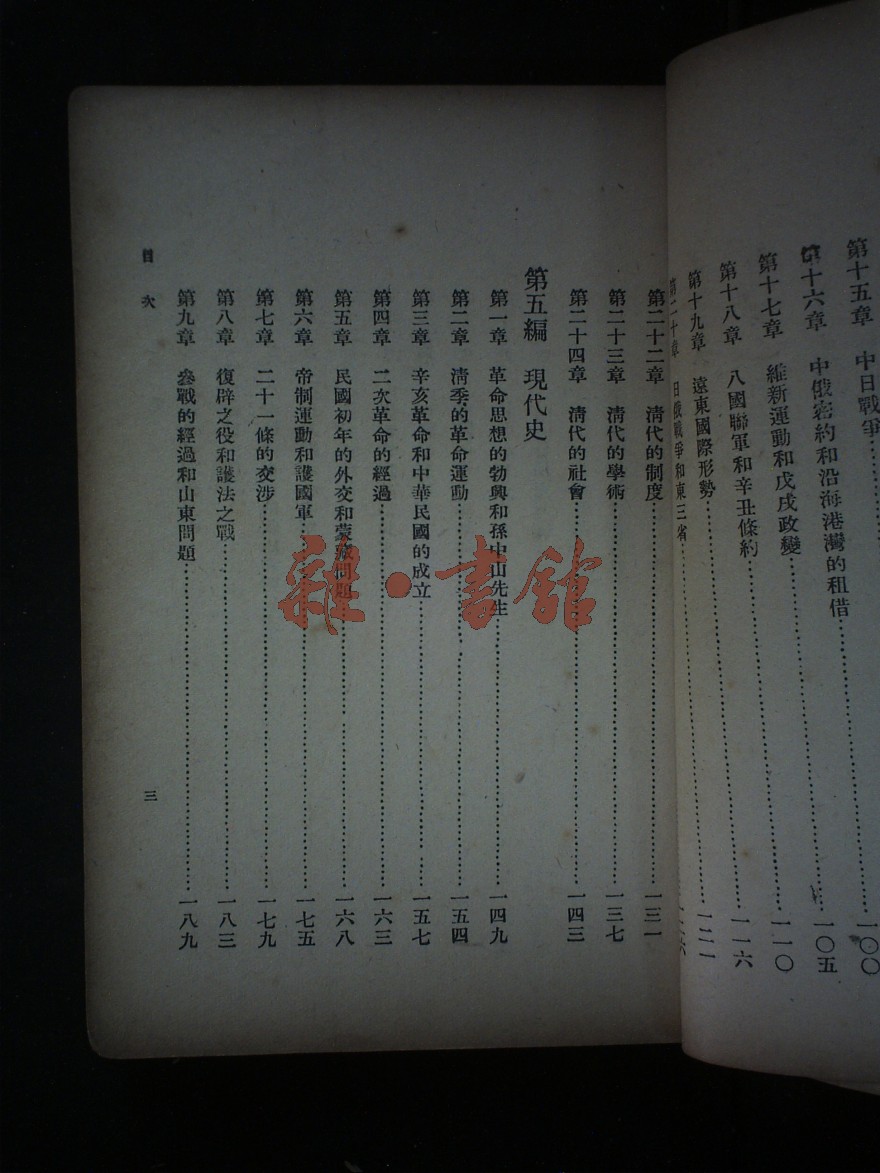 第十五章　中日戰爭……一〇〇
第十六章　中俄密約和沿海港灣的租借……一〇五
第十七章　維新運動和戊戌政變……一一〇
第十八章　八國聯軍和辛丑條約……一一六
第十九章　遠東國際形勢……一二一
第二十章　日俄戰爭和東三省
第二十二章　清代的制度……一三一
第二十三章　清代的學術……一三七
第二十四章　清代的社會……一四三
第五編　現代史
第一章　革命思想的勃興和孫中山先生……一四九
第二章　清季的革命運動……一五四
第三章　辛亥革命和中華民國的成立……一五七
第四章　二次革命的經過……一六三
第五章　民國初年的外交和蒙藏問題……一六八
第六章　帝制運動和護國軍……一七五
第七章　二十一條的交涉……一七九
第八章　復辟之役和護法之戰……一八三
第九章　參戰的經過和山東問題……一八九
目次
三
雜·書館